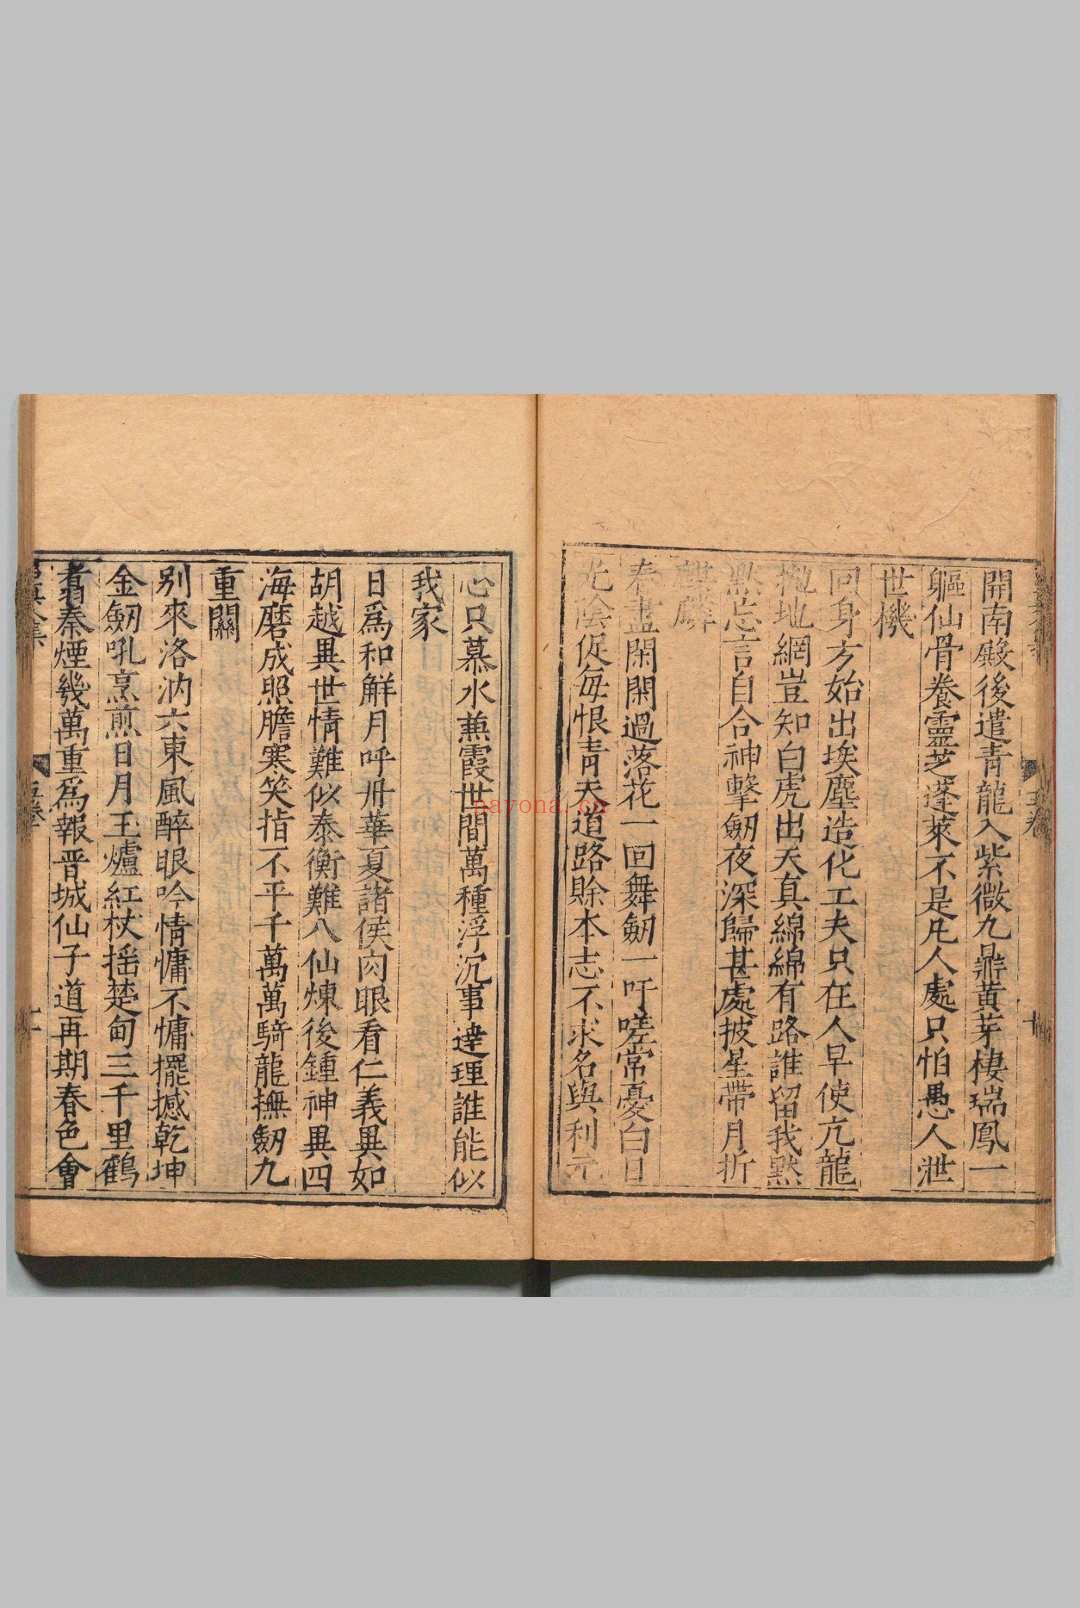 開南殿後遣青龍入紫微九鼎黃芽棲瑞鳳一
軀仙骨養靈芝蓬萊不是凡人處只怕愚人泄
世機
回身方始出埃塵造化工夫只在人早使亢龍
拋地網豈知白虎出天真綿綿有路誰留我黙
黙忘言自合神擊劒夜深歸甚處披星帶月折
麒麟
春盡閑閑過落花一回舞劒一吁嗟常憂白日
光陰促每恨青天道路賒本志不求名與利元
心只慕水蕪霞世間萬種浮沉事達理誰能似
我家
日爲和解月呼丹華夏諸侯肉眼看仁義異如
胡越異世情難似泰衡難八仙煉後鍾神異四
海磨成照膽寒笑指不平千萬萬騎龍撫劒九
重關
別來洛汭六東風醉眼吟情慵不慵擺撼乾坤
金劒吼烹煎日月玉爐紅杖搖楚甸三千里鶴
翥秦煙幾萬重爲報晋城仙子道再期春色會
nayona.cn